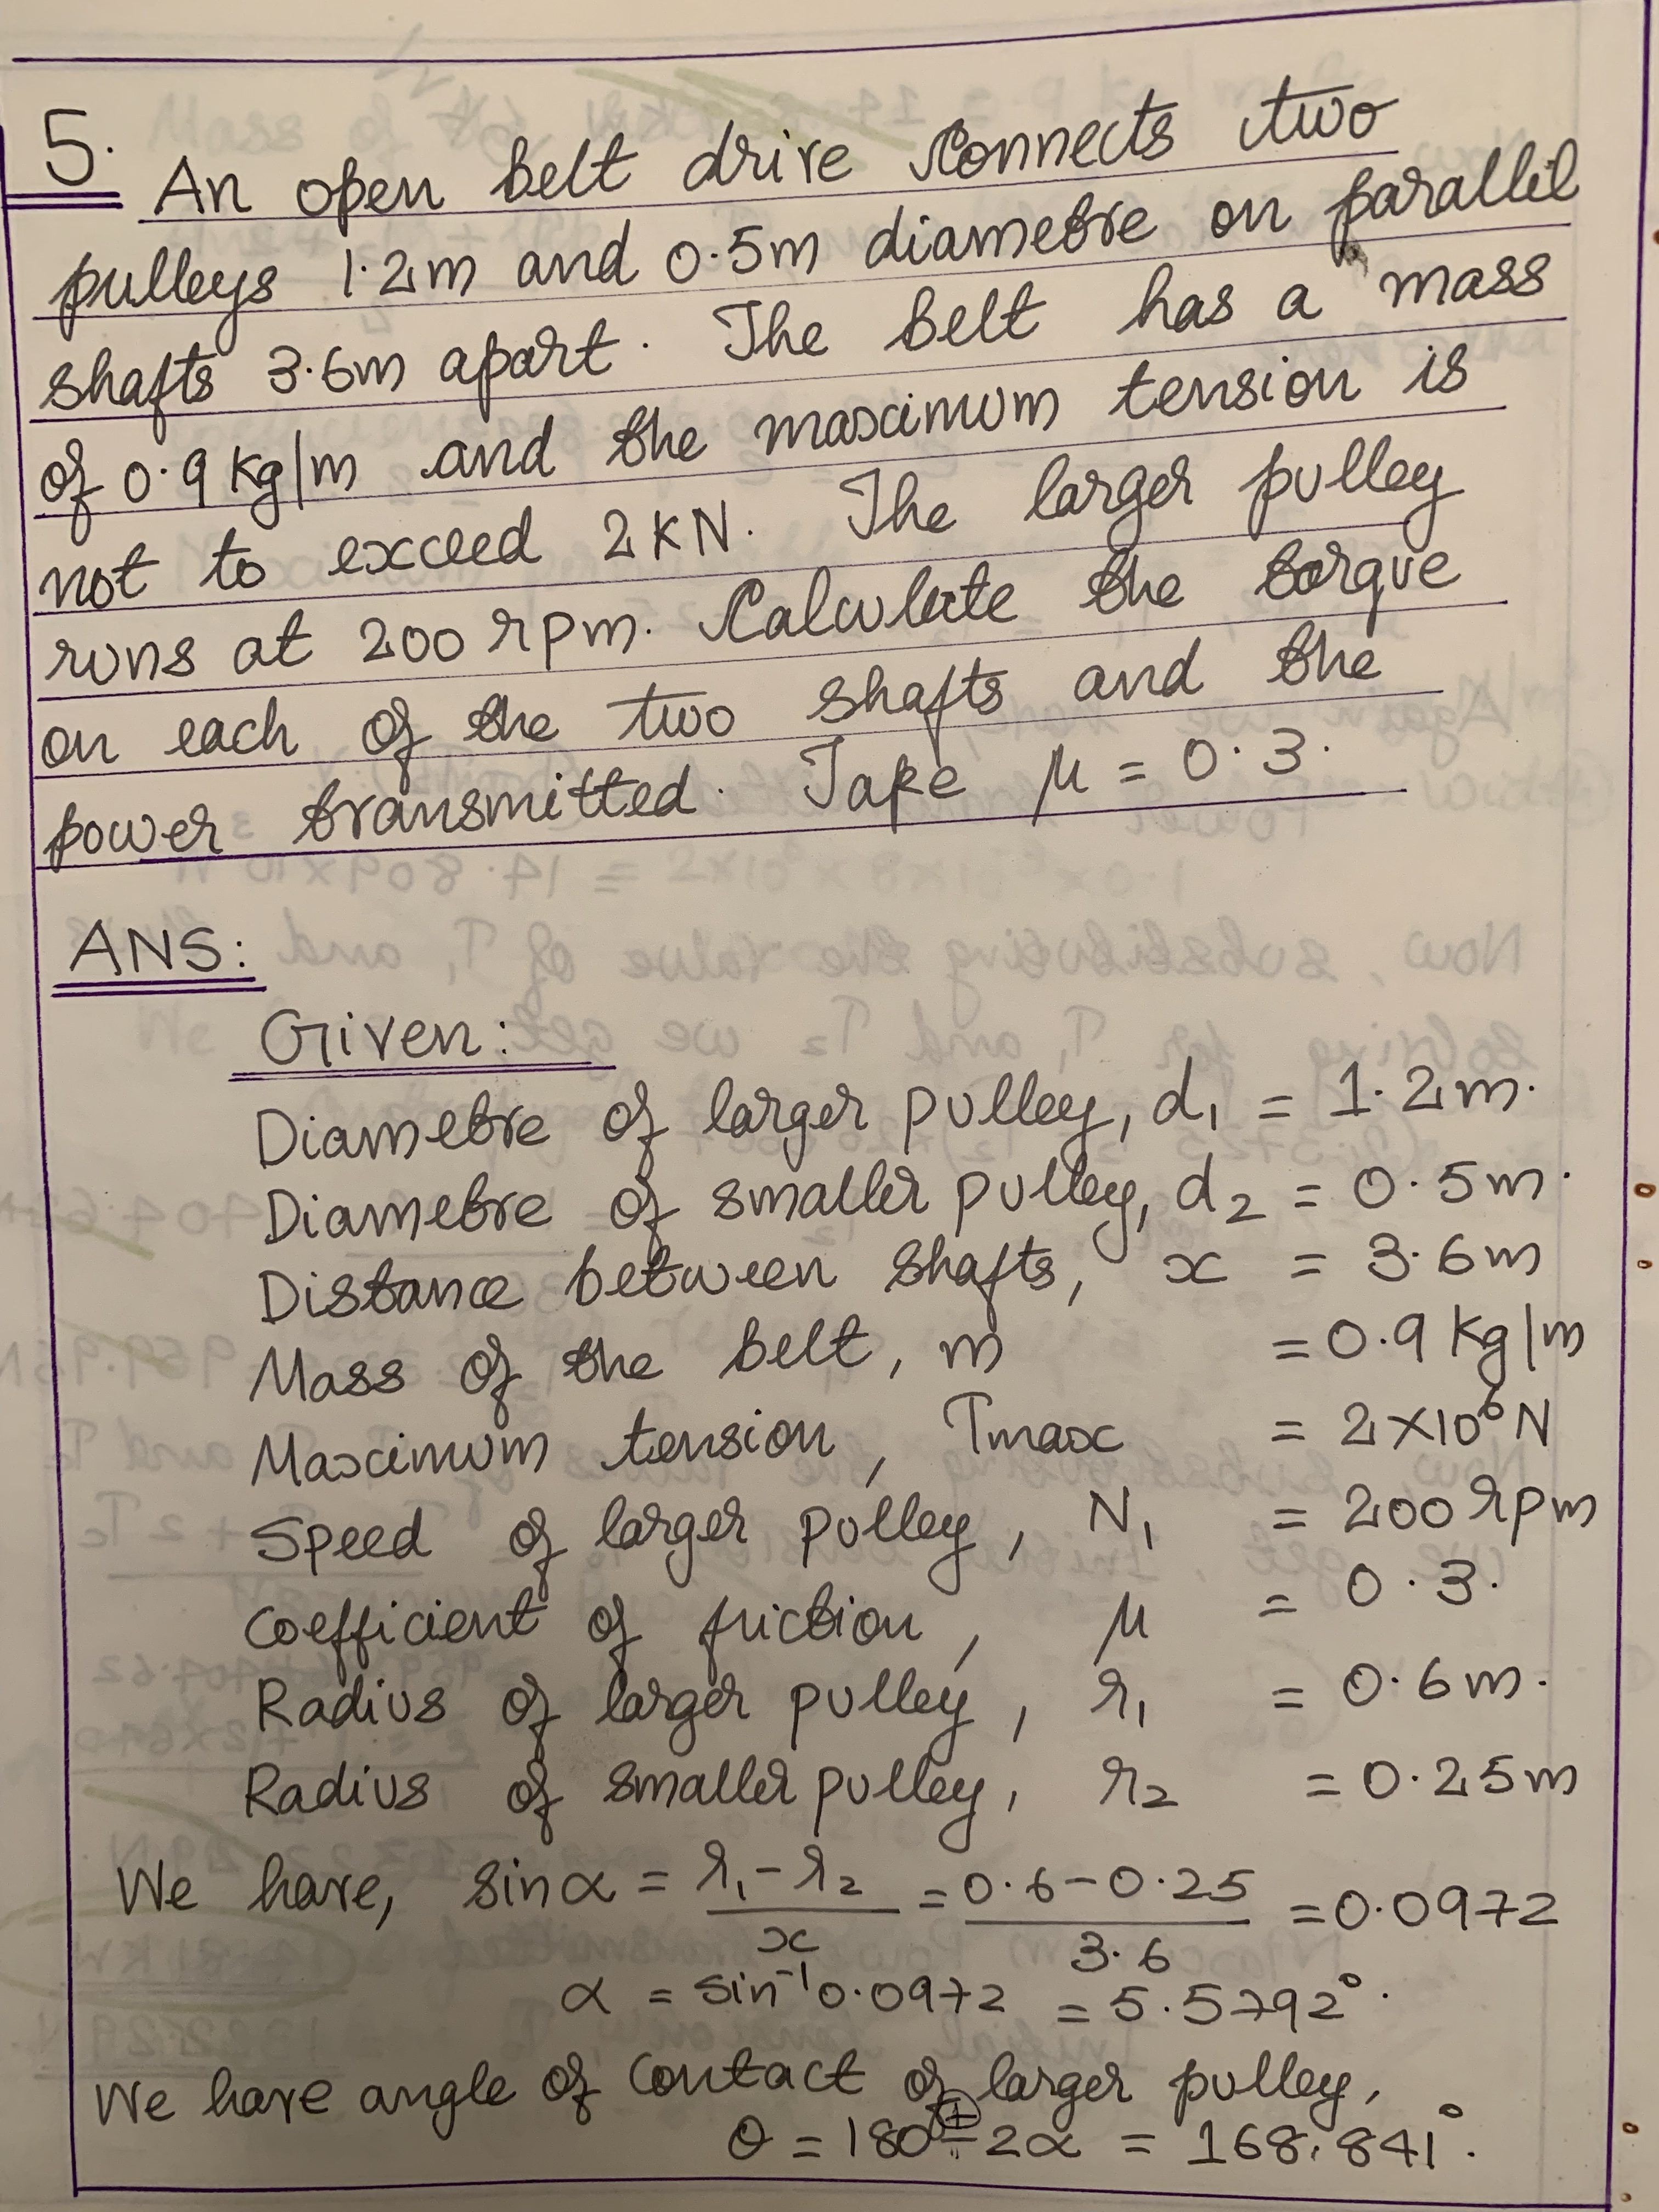 5. An open belt drive connects two
pulleys 1.2m and 0.5m diametre on parallel
shafts 3.6m apart. The belt has a mass
of 0.9 Kg/m and the maximum tension is
not to exceed 2KN. The larger pulley
runs at 200 rpm. Calculate the torque
on each of the two shafts and the
power transmitted. Take μ = 0.3.
ANS:
Given:
Diametre of larger pulley, d₁ = 1.2m.
Diametre of smaller pulley, d₂ = 0.5m.
Distance between shafts, x = 3.6m
Mass of the belt, m = 0.9 Kg/m
Maximum tension, Tmax = 2×10⁶N
Speed of larger pulley, N₁ = 200 rpm
Coefficient of friction, μ = 0.3.
Radius of larger pulley, r₁ = 0.6m.
Radius of smaller pulley, r₂ = 0.25m
We have, sinα = r₁-r₂/x = 0.6-0.25/3.6 = 0.0972
α = sin⁻¹0.0972 = 5.5792°.
We have angle of contact of larger pulley,
+
θ = 180°-2α = 168.841°.